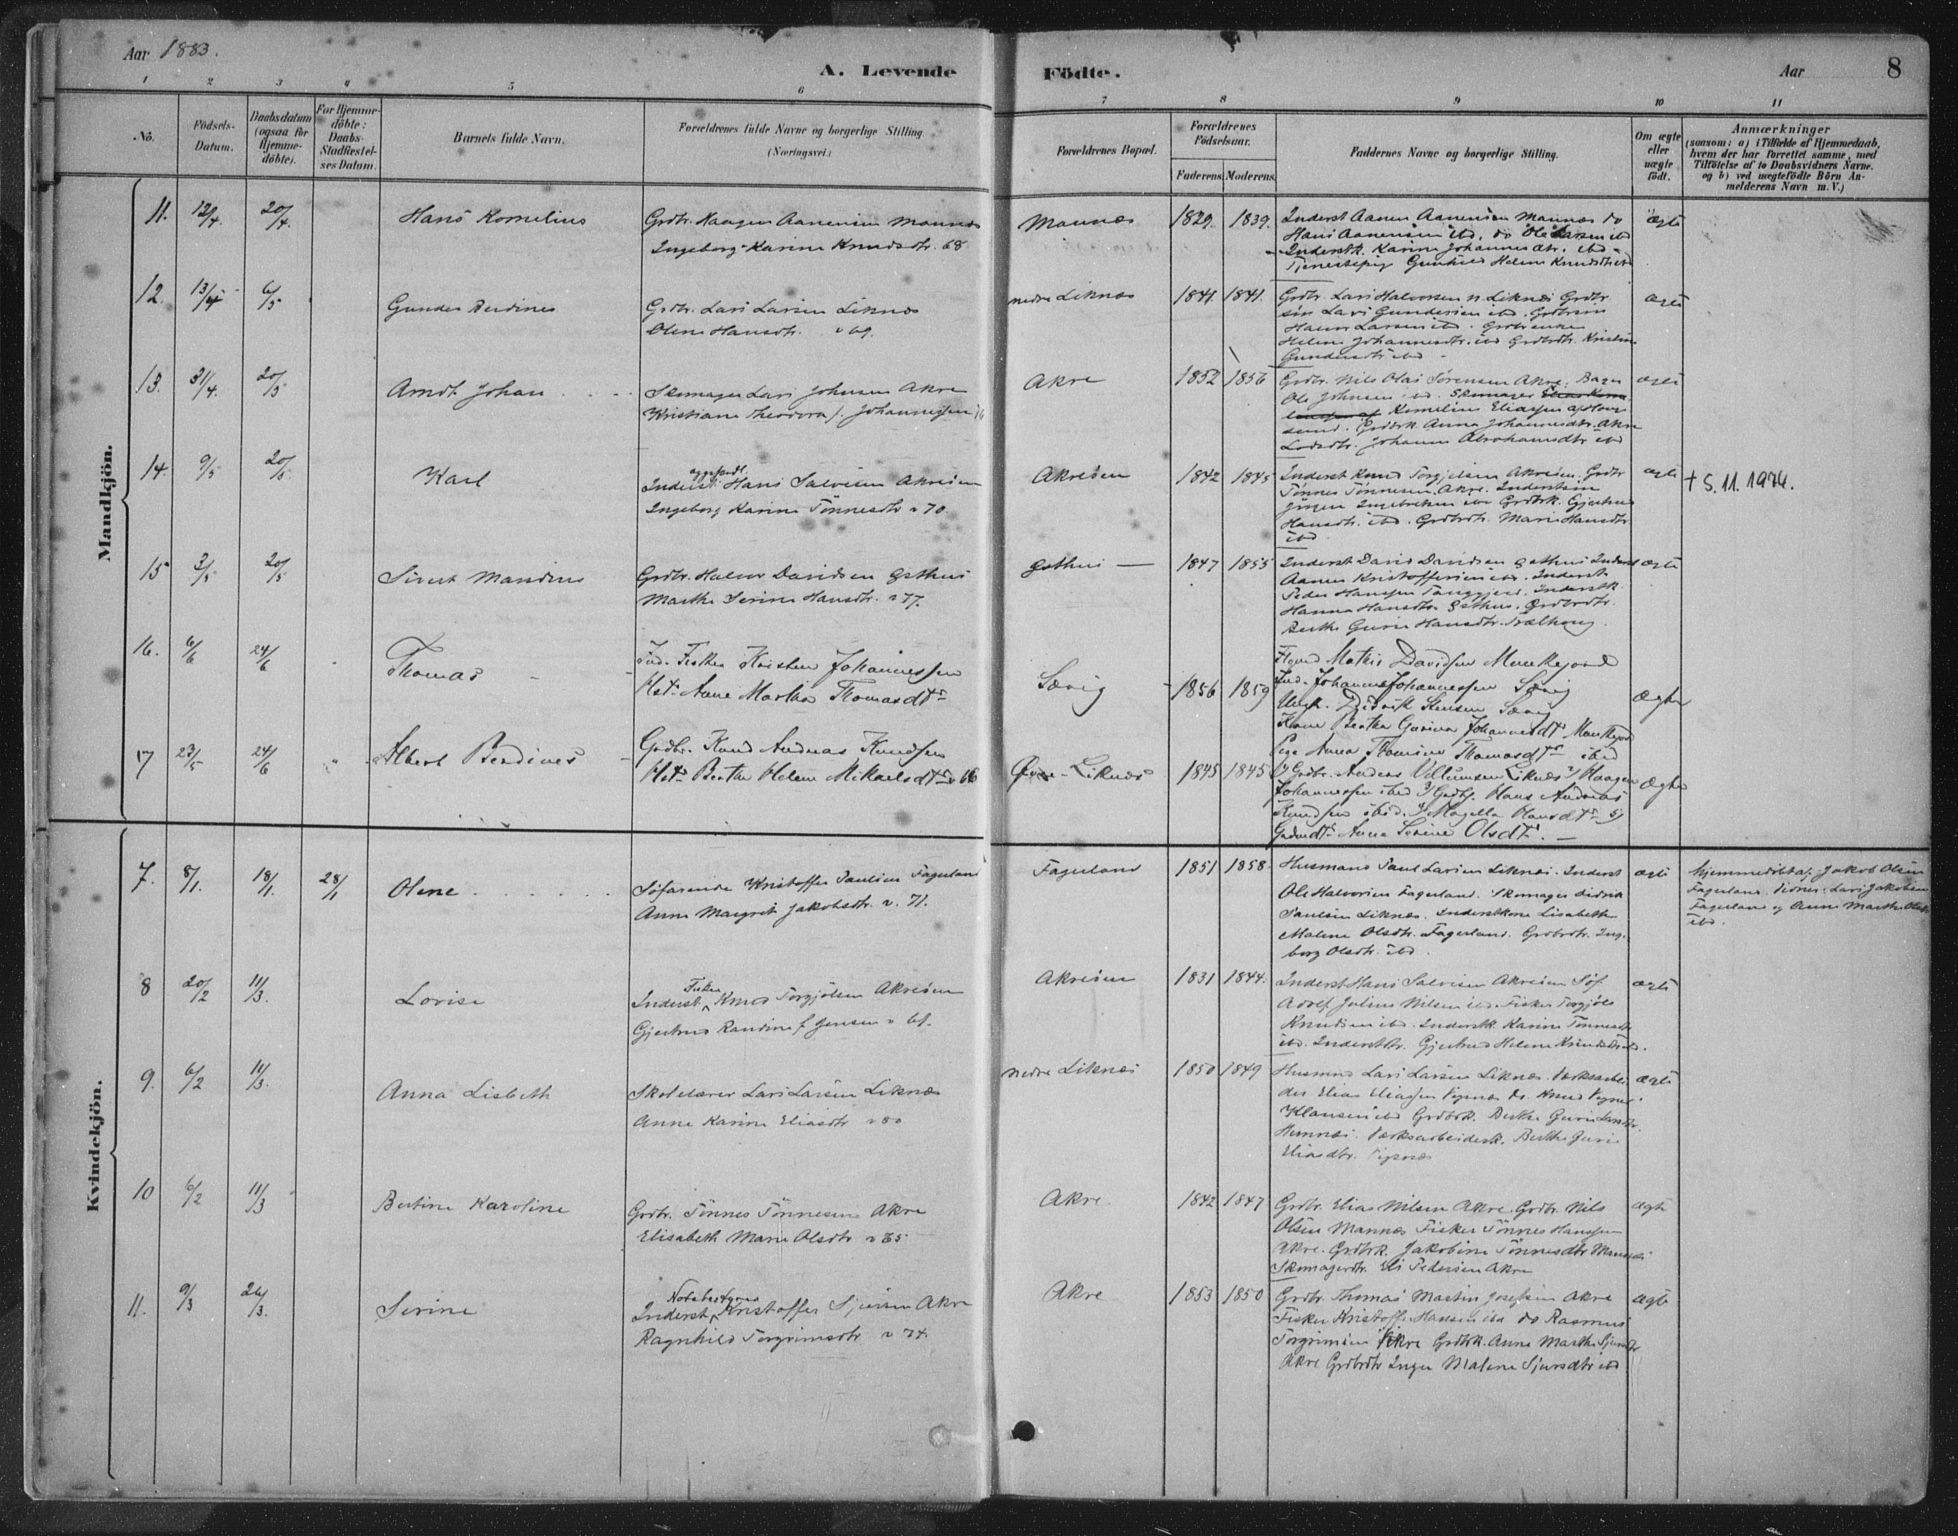 Aar 1883.
A. Levende
Födte.
Aar
8
1 2 3 4 5 6
7 8 9 10 11
No.
Födsels-
Datum.
Daabsdatum
(ogsaa for
Hjemme-
döbte).
For Hjemme-
döbte:
Daabs-
Stadfæstel-
ses Datum.
Barnets fulde Navn.
Forældrenes fulde Navne og borgerlige Stilling
(Næringsvei.)
Forældrenes Bopæl.
Forældrenes
Födselsaar.
Faderens.
Moderens.
Faddernes Navne og borgerlige Stilling.
Om ægte
eller
uægte
födt.
Anmærkninger
(saasom: a) i Tilfælde af Hjemmedaab,
hvem der har forrettet samme, med
Tilföielse af to Daabsvidners Navne.
og b) ved uægtefödte Börn An-
melderens Navn m. V.)
Mandkjön.
11. 12/4. 20/4. Hans Kornelius
Grdbr. Haagen Aanensen Mannes
Ingeborg Karine Knudsdtr. 68
Mannes 1829. 1839.
Inderst Aanen Aanensen Mannes do
Hans Aanensen ibd. do Ole Larsen ibd
Inderstk. Karine Johannesdtr. ibd
Tjenestepig Gunhild Helene Knudsdtr ibd
ægte
12. 13/4 6/5 Gunder Berdines
Grdbr. Lars Larsen Liknes
Olene Hansdtr. " 69.
nedre Liknes 1841. 1841.
Grdbr. Lars Halvorsen n. Liknes Grdbr
søn Lars Gundersen ibd. Grdbrsøn
Hans Larsen ibd. Grdbrenke
Helene Johannesdtr. ibd Grdbrdtr. Kristine
Gundersdtr ibd
ægte
13. 31/4. 20/5 Arndt Johan
Skomager Lars Johnsen Akre
Kristiane Theodora f. Johannessen
Akre 1852 1856
Grdbr. Nils Olai Sørensen Akre.
Ole Johnsen ibd. Skomager
Kornelius Eliassen af Hauge
sund. Grdbrk. Anna Johannesdtr. Akre
Johanne Abrahamsdtr ibd
ægte
14. 9/5 20/5. Karl
Inderst Hans Salvesen Akreøen
Ingeborg Karine Tønnesdtr " 70
Akreøen 1842 1845
Inderst Knud Torgjelsen Akreøen. Grdbr
Tønnes Tønnesen Akre. Inderstsøn
Jørgen Ingebretsen ibd Grdbrk. Gjertrud
Hansdtr. ibd. Grdbrdtr. Marie Hansdtr
ibd
ægte
† 5.11.1974.
15 3/5 20/5 Sivert Mandius
Grdbr. Halvor Davidsen Østhus
Marthe Serine Hansdtr. " 77.
Østhus 1847 1855
Inderst David Davidsen Østhus Inderst
Aanen Kristoffersen ibd. Inderst
Peder Hanssen
Hanne Hansdtr Østhus. Grdbrdtr.
Berthe Gurine Hansdtr.
ægte
16. 6/6 24/6 Thomas
Ind. Fisker Kristen Johannessen
Hst. Anne Martha Thomasdtr
Sævig 1856 1859
Mathis Davidsen Munkejord
Ind. Johannes Johannessen Sævig
Ungk. Didrik Stensen Sævig
Kone Bertha Gurina Johannesdtr Munkejord
Pige Anna Thomine Thomasdtr ibid
ægte
17 23/5 24/6 Albert Berdines
Grdbr. Knud Andreas Knudsen
Hst. Berthe Helene Mikaelsdtr 66
Øvre-Liknes 1845 1845
1/ Grdbr. Anders Villumsen Liknes 2/ Haagen
Johannessen ibid 3/ Grdbr. Hans Andreas
Knudsen ibid. 4/ Magella Hansdtr 5/
Anna Serine Olsdtr.
ægte
Kvindekjön.
7. 8/1. 18/1. 28/1 Olene
Söfarende Kristoffer Paulsen Fagerland
Anne Margret Jakobsdtr. " 71.
Fagerland 1851 1858.
Husmand Paul Larsen Liknes. Inderst
Ole Halvorsen Fagerland. Skomager Didrik
Paulsen Liknes. Inderstkone Lisabeth
Malene Olsdtr. Fagerland. Grdbrdtr. Inge-
borg Olsdtr. ibd.
ægte
hjemmedöbt af Jakob Olsen
Fagerland. Vidner: Lars Jakobsen
Fagerland og Anne Marthe Olsdtr
ibd.
8 20/2 11/3. Lovise
Fisker
Inderst Knud Torgjelsen Akreøen
Gjertrud Randine f Jensen " 61.
Akreøen 1831 1844.
Inderst Hans Salvesen Akreøen Söf
Adolf Julius Nilsen ibd. Fisker Torgjels
Knudsen ibd. Inderstk. Karine Tønnesdtr
ibd. Inderstdtr. Gjertrud Helene Knudsdtr ibd.
ægte
9. 6/2 11/3. Anna Lisbeth
Skolelærer Lars Larsen Liknes
Anne Karine Eliasdtr " 80
nedre Liknes 1850 1849
Husmand Lars Larsen Liknes. Værksarbei
der Elias Eliassen Vignes do. Knud
Klausen ibd Grdbrk. Berthe Gurine Larsdtr.
Hemnes. Værksarbeiderk. Berthe Gurine
Eliasdtr. Vignes
ægte
10 6/2 11/3 Bertine Karoline
Grdbr. Tønnes Tønnesen Akre
Elisabeth Marie Olsdtr " 65
Akre. 1842 1847
Grdbr. Elias Nilsen Akre. Grdbr. Nils
Olsen Mannes Fisker Tønnes Hanssen
Akre. Grdbrk. Jakobine Tønnesdtr Mannes
Skomagerdtr. Eli Pedersen Akre
ægte
11. 9/3 26/3. Serine
Notebestyrer
Inderst Kristoffer Sjursen Akre
Ragnhild Torgrimsdtr " 74.
Akre 1853 1850
Grdbr. Thomas Martin Josefsen Akre
Fisker Kristoffer Hansen ibd do Rasmus
Torgrimsen Akre Grdbrk. Anne Marthe Sjursdtr
Akre Grdbrdtr Inger Malene Sjursdtr ibd
ægte